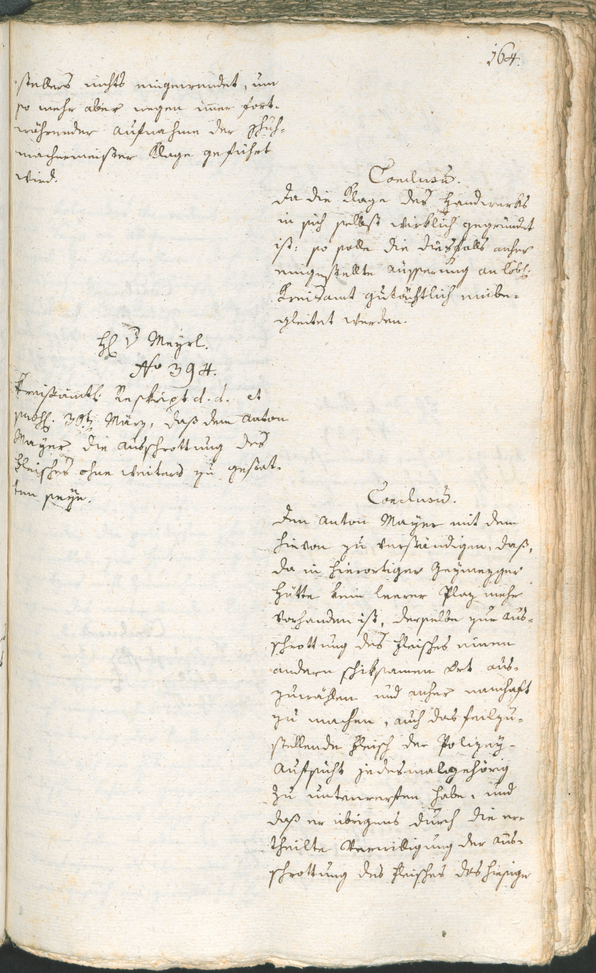 164.
stellers nichts eingewendet, um
so mehr aber wegen einer fort-
währender Aufnahme der Schuh-
machermeister Klage geführt
wird.
Conclusum.
Da die Klage des Handwerks
in sich selbst wirklich gegründet
ist: so solle die diesfalls anher
eingestellte Äusserung an Löbl.
Kreisamt gutächtlich einbe-
gleitet werden.
Meyrl.
No 394.
Kreisämtl. Reskript d. d. et
30t März, daß dem Anton
Mayer die Ausschrottung des
Fleisches ohne weiters zu gestat-
ten seye.
Conclusum.
Den Anton Mayer mit dem
hievon zu verständigen, daß,
da in hierortiger
Hütte kein leerer Plaz mehr
vorhanden ist, derselbe zur Aus-
schrottung des Fleisches einen
andern schiksamen Ort aus-
zuwählen und anher namhaft
zu machen, auch das feilzu-
stellende Fleisch der Polizey-
Aufsicht jedesmal gehörig
zu unterwerfen habe, und
daß er übrigens durch die er-
theilte Verwilligung der Aus-
schrottung des Fleisches des hiesige